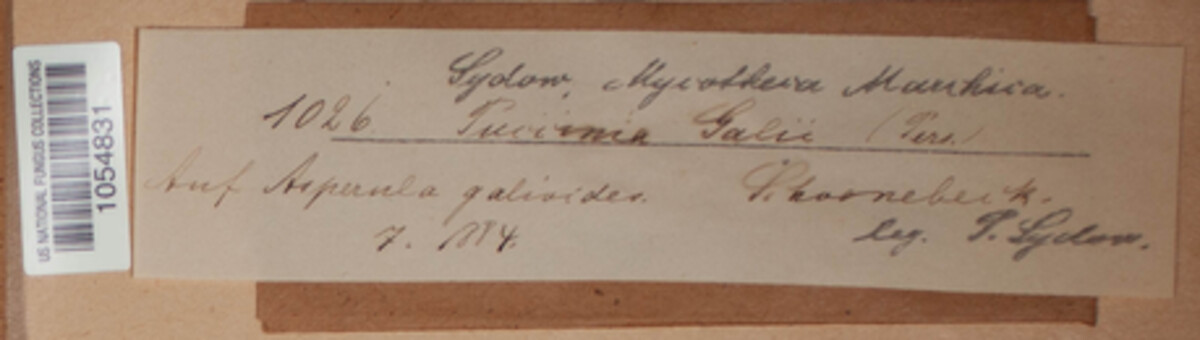 US NATIONAL FUNGUS COLLECTIONS
1054831
Sydow, Mycotheca Marchica.
1026. Puccinia Galii (Pers.)
Auf Asperula galioides. Schoenebeck.
7. 1884.
leg. P. Sydow.